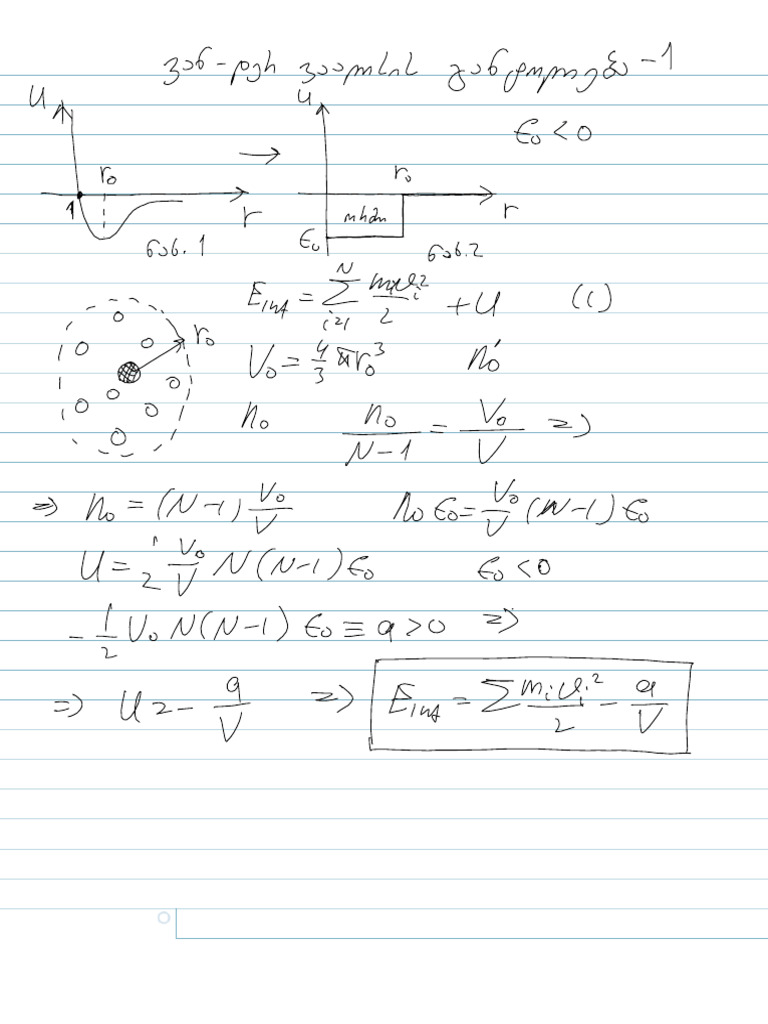 ვან-დერ ვაალსის განტოლება-1
U r₀ 1 r ნახ. 1
→
U r₀ r ε₀ ორმო ნახ.2
ε₀ < 0
E_int = Σ_{i=1}^{N} m_i v_i²/2 + U (1)
r₀
V₀ = 4/3 πr₀³ n₀'
n₀ n₀/(N-1) = V₀/V ⇒
⇒ n₀ = (N-1) V₀/V n₀ ε₀ = V₀/V (N-1) ε₀
U = 1/2 V₀/V N(N-1) ε₀ ε₀ < 0
- 1/2 V₀ N(N-1) ε₀ ≡ a > 0 ⇒
⇒ U = - a/V ⇒ E_int = Σ m_i v_i²/2 - a/V